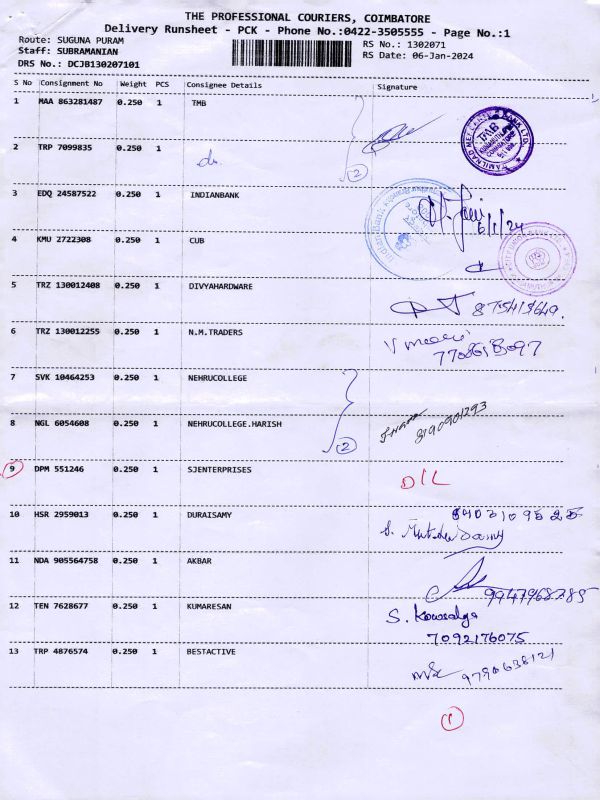 THE PROFESSIONAL COURIERS, COIMBATORE
Delivery Runsheet - PCK - Phone No.:0422-3505555 - Page No.:1
Route: SUGUNA PURAM RS No.: 1302071
Staff: SUBRAMANIAN RS Date: 06-Jan-2024
DRS No.: DCJB130207101
S No Consignment No Weight PCS Consignee Details Signature
1 MAA 863281487 0.250 1 TMB
2 TRP 7099835 0.250 1 do.
2
3 EDQ 24587522 0.250 1 INDIANBANK
6/1/24
4 KMU 2722308 0.250 1 CUB
5 TRZ 130012408 0.250 1 DIVYAHARDWARE
6 TRZ 130012255 0.250 1 N.M.TRADERS
7 SVK 10464253 0.250 1 NEHRUCOLLEGE
8 NGL 6054608 0.250 1 NEHRUCOLLEGE.HARISH 8190901293
2
9 DPM 551246 0.250 1 SJENTERPRISES D/L
10 HSR 2959013 0.250 1 DURAISAMY
11 NDA 905564758 0.250 1 AKBAR
12 TEN 7628677 0.250 1 KUMARESAN S. Kowsalya
7092176075
13 TRP 4876574 0.250 1 BESTACTIVE 9790638121
1